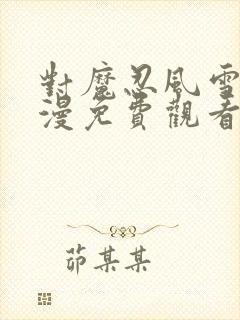 對魔忍風雪
漫免費觀看
茆某某